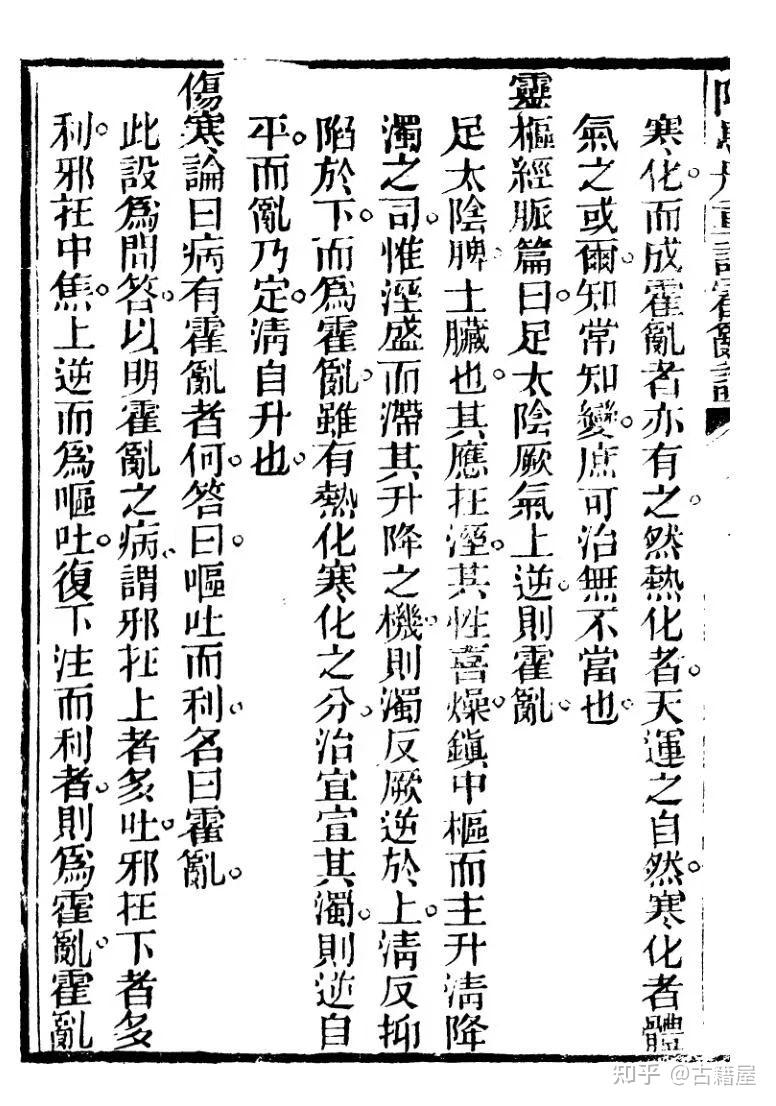 重訂霍亂論
寒化。而成霍亂者亦有之。然熱化者。天運之自然。寒化者體
氣之或爾。知常知變。庶可治無不當也。
靈樞經脈篇曰。足太陰厥氣上逆。則霍亂。
足太陰脾。土臟也。其應在溼。其性喜燥。鎮中樞而主升清降
濁之司。惟溼盛而滯其升降之機。則濁反厥逆於上。清反抑
陷於下。而爲霍亂。雖有熱化寒化之分。治宜宣其濁。則逆自
平。而亂乃定。清自升也。
傷寒論曰病有霍亂者何。答曰。嘔吐而利。名曰霍亂。
此設爲問答。以明霍亂之病。謂邪在上者多吐。邪在下者多
利。邪在中焦。上逆而爲嘔吐。復下注而利者。則爲霍亂。霍亂
知乎 @古籍屋